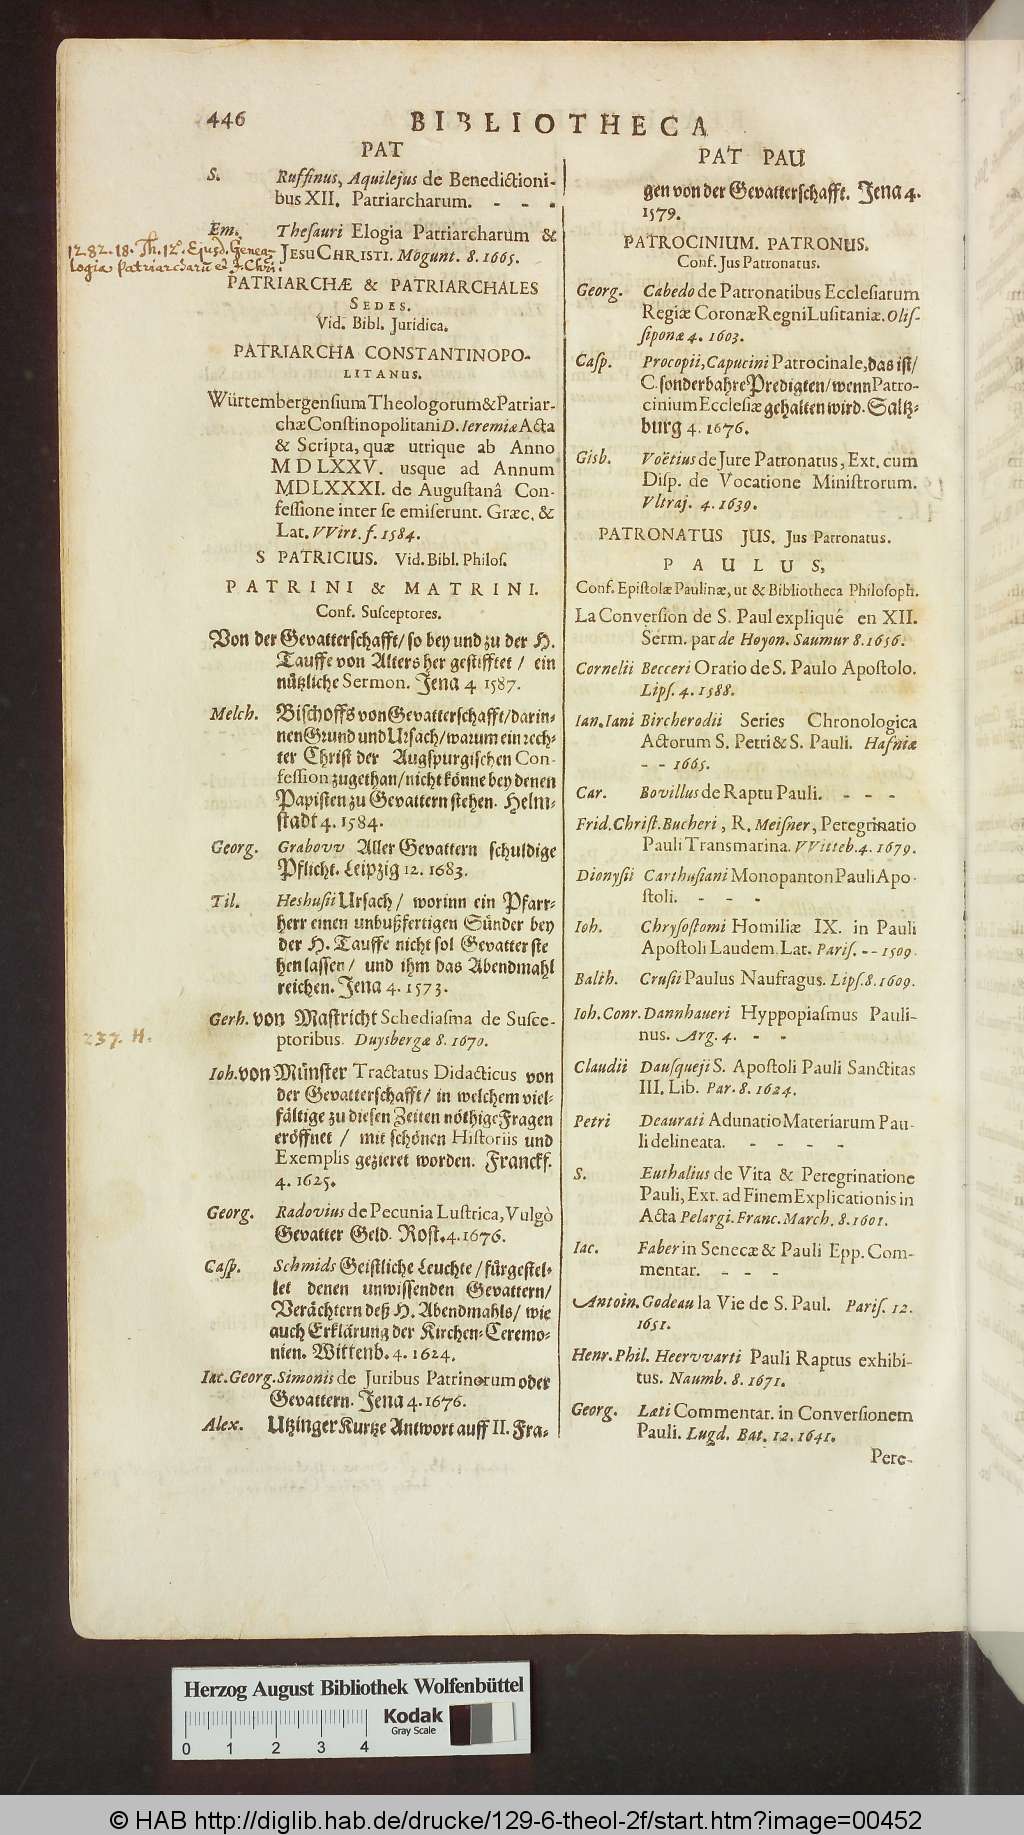 446
BIBLIOTHECA
PAT
S. Ruffinus, Aquilejus de Benedictioni-
bus XII. Patriarcharum. - - -
Em. Thesauri Elogia Patriarcharum &
JESU CHRISTI. Mogunt. 8. 1665.
12.82.18. Th. 12º. Ejusd. Genea-
logia patriarcharū et J. Chri.
PATRIARCHÆ & PATRIARCHALES
SEDES.
Vid. Bibl. Juridica.
PATRIARCHA CONSTANTINOPO-
LITANUS.
Würtembergensium Theologorum & Patriar-
chæ Constinopolitani D. Ieremiæ Acta
& Scripta, quæ utrique ab Anno
MDLXXV. usque ad Annum
MDLXXXI. de Augustanâ Con-
fessione inter se emiserunt. Græc. &
Lat. VVirt. f. 1584.
S PATRICIUS. Vid. Bibl. Philos.
PATRINI & MATRINI.
Conf. Susceptores.
Von der Gevatterschafft/ so bey und zu der H.
Tauffe von Alters her gestifftet / ein
nützliche Sermon. Jena 4 1587.
Melch. Bischoffs von Gevatterschafft/ darin-
nen Grund und Ursach/ warum ein rech-
ter Christ der Augspurgischen Con-
fession zugethan/ nicht könne bey denen
Papisten zu Gevattern stehen. Helm-
stadt 4. 1584.
Georg. Grabovv Aller Gevattern schuldige
Pflicht. Leipzig 12. 1683.
Til. Heshusii Ursach/ worinn ein Pfarr-
herr einen unbußfertigen Sünder bey
der H. Tauffe nicht sol Gevatter ste
hen lassen/ und ihm das Abendmahl
reichen. Jena 4. 1573.
Gerh. von Mastricht Schediasma de Susce-
ptoribus. Duysbergæ 8. 1670.
237. H.
Ioh. von Münster Tractatus Didacticus von
der Gevatterschafft/ in welchem viel-
fältige zu diesen Zeiten nöthige Fragen
eröffnet / mit schönen Historiis und
Exemplis gezieret worden. Franckf.
4. 1625.
Georg. Radovius de Pecunia Lustrica, Vulgò
Gevatter Geld. Rost. 4. 1676.
Casp. Schmids Geistliche Leuchte/ fürgestel-
let denen unwissenden Gevattern/
Verächtern deß H. Abendmahls/ wie
auch Erklärung der Kirchen-Ceremo-
nien. Wittenb. 4. 1624.
Iac. Georg. Simonis de Juribus Patrinorum oder
Gevattern. Jena 4. 1676.
Alex. Utzinger Kurtze Antwort auff II. Fra-
PAT PAU
gen von der Gevatterschafft. Jena 4.
1579.
PATROCINIUM. PATRONUS.
Conf. Jus Patronatus.
Georg. Cabedo de Patronatibus Ecclesiarum
Regiæ Coronæ Regni Lusitaniæ. Olis-
siponæ 4. 1603.
Casp. Procopii, Capucini Patrocinale, das ist/
C. sonderbahre Predigten/ wenn Patro-
cinium Ecclesiæ gehalten wird. Saltz-
burg 4. 1676.
Gisb. Voëtius de Jure Patronatus, Ext. cum
Disp. de Vocatione Ministrorum.
Vltraj. 4. 1639.
PATRONATUS JUS. Jus Patronatus.
PAULUS,
Conf. Epistolæ Paulinæ, ut & Bibliotheca Philosoph.
La Conversion de S. Paul expliqué en XII.
Serm. par de Hoyon. Saumur 8. 1656.
Cornelii Becceri Oratio de S. Paulo Apostolo.
Lips. 4. 1588.
Ian. Iani Bircherodii Series Chronologica
Actorum S. Petri & S. Pauli. Hafniæ
- - 1665.
Car. Bovillus de Raptu Pauli. - - -
Frid. Christ. Bucheri, R. Meisner, Peregrinatio
Pauli Transmarina. VVitteb. 4. 1679.
Dionysii Carthusiani Monopanton Pauli Apo-
stoli. - - -
Ioh. Chrysostomi Homiliæ IX. in Pauli
Apostoli Laudem. Lat. Paris. - - 1509.
Balth. Crusii Paulus Naufragus. Lips. 8. 1609.
Ioh. Conr. Dannhaueri Hyppopiasmus Pauli-
nus. Arg. 4. - -
Claudii Dausqueji S. Apostoli Pauli Sanctitas
III. Lib. Par. 8. 1624.
Petri Deaurati Adunatio Materiarum Pau-
li delineata. - - - -
S. Euthalius de Vita & Peregrinatione
Pauli, Ext. ad Finem Explicationis in
Acta Pelargi. Franc. March. 8. 1601.
Iac. Faber in Senecæ & Pauli Epp. Com-
mentar. - - -
Antoin. Godeau la Vie de S. Paul. Paris. 12.
1651.
Henr. Phil. Heervvarti Pauli Raptus exhibi-
tus. Naumb. 8. 1671.
Georg. Læti Commentar. in Conversionem
Pauli. Lugd. Bat. 12. 1641.
Pere-
Herzog August Bibliothek Wolfenbüttel
Kodak
Gray Scale
0 1 2 3 4
© HAB http://diglib.hab.de/drucke/129-6-theol-2f/start.htm?image=00452